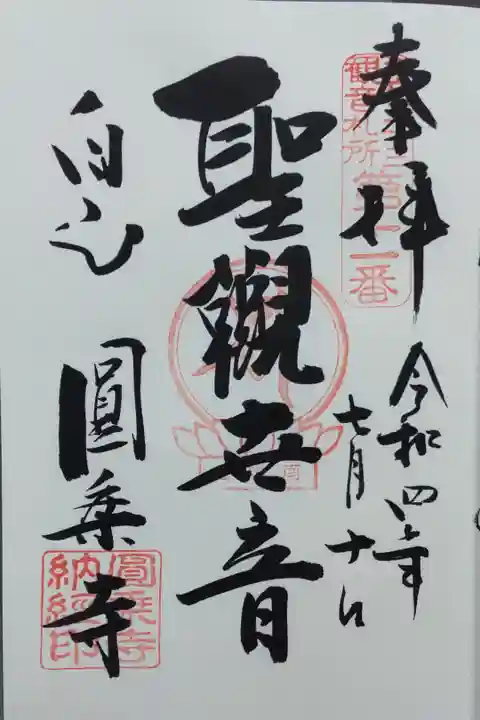 奉拝
観音札所
番
令和四年
七月十日
聖觀世音
白山
圓乗寺
圓乗寺
納経印